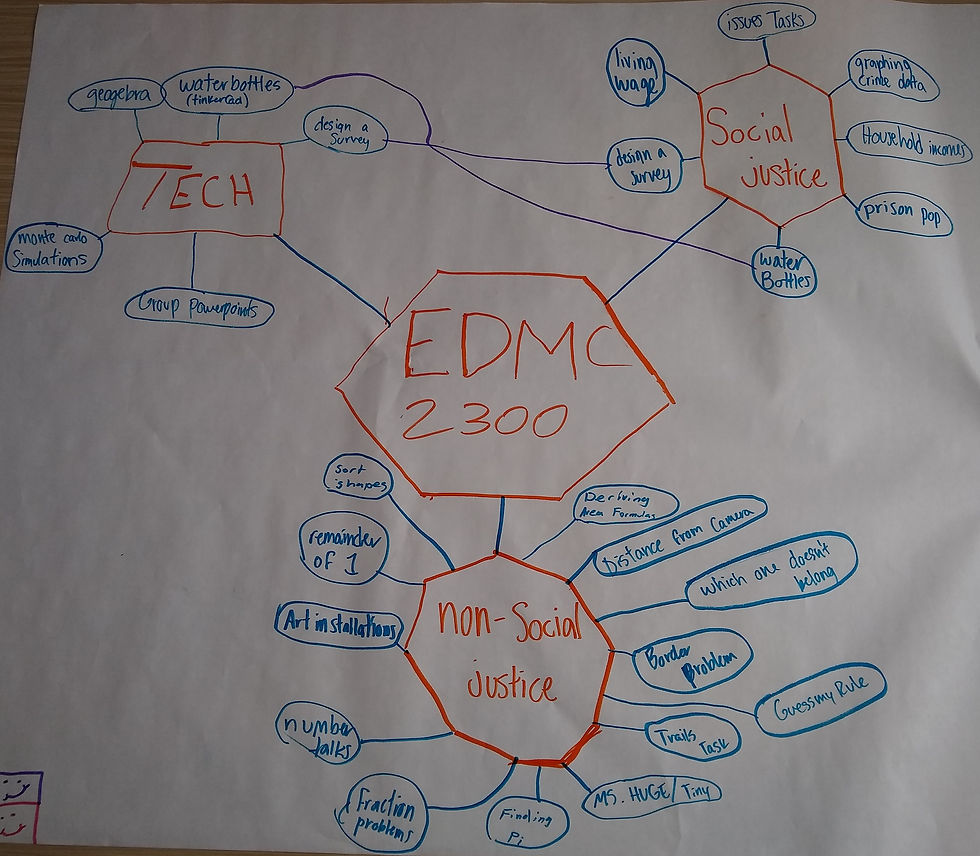 issues Tasks
living
wage
graphing
crime data
Social
justice
Household incomes
design a
survey
prison pop
water
Bottles
geogebra
waterbottles
(tinkerCad)
design a
survey
TECH
monte carlo
Simulations
Group powerpoints
EDMC
2300
Sort
shapes
Deriving
Area Formulas
remainder
of 1
Distance from Camera
which one doesn't
belong
Art installations
non-Social
justice
Border
Problem
Guess my Rule
number
talks
Trails
Task
Fraction
problems
Finding
Pi
MS. HUGE/Tiny